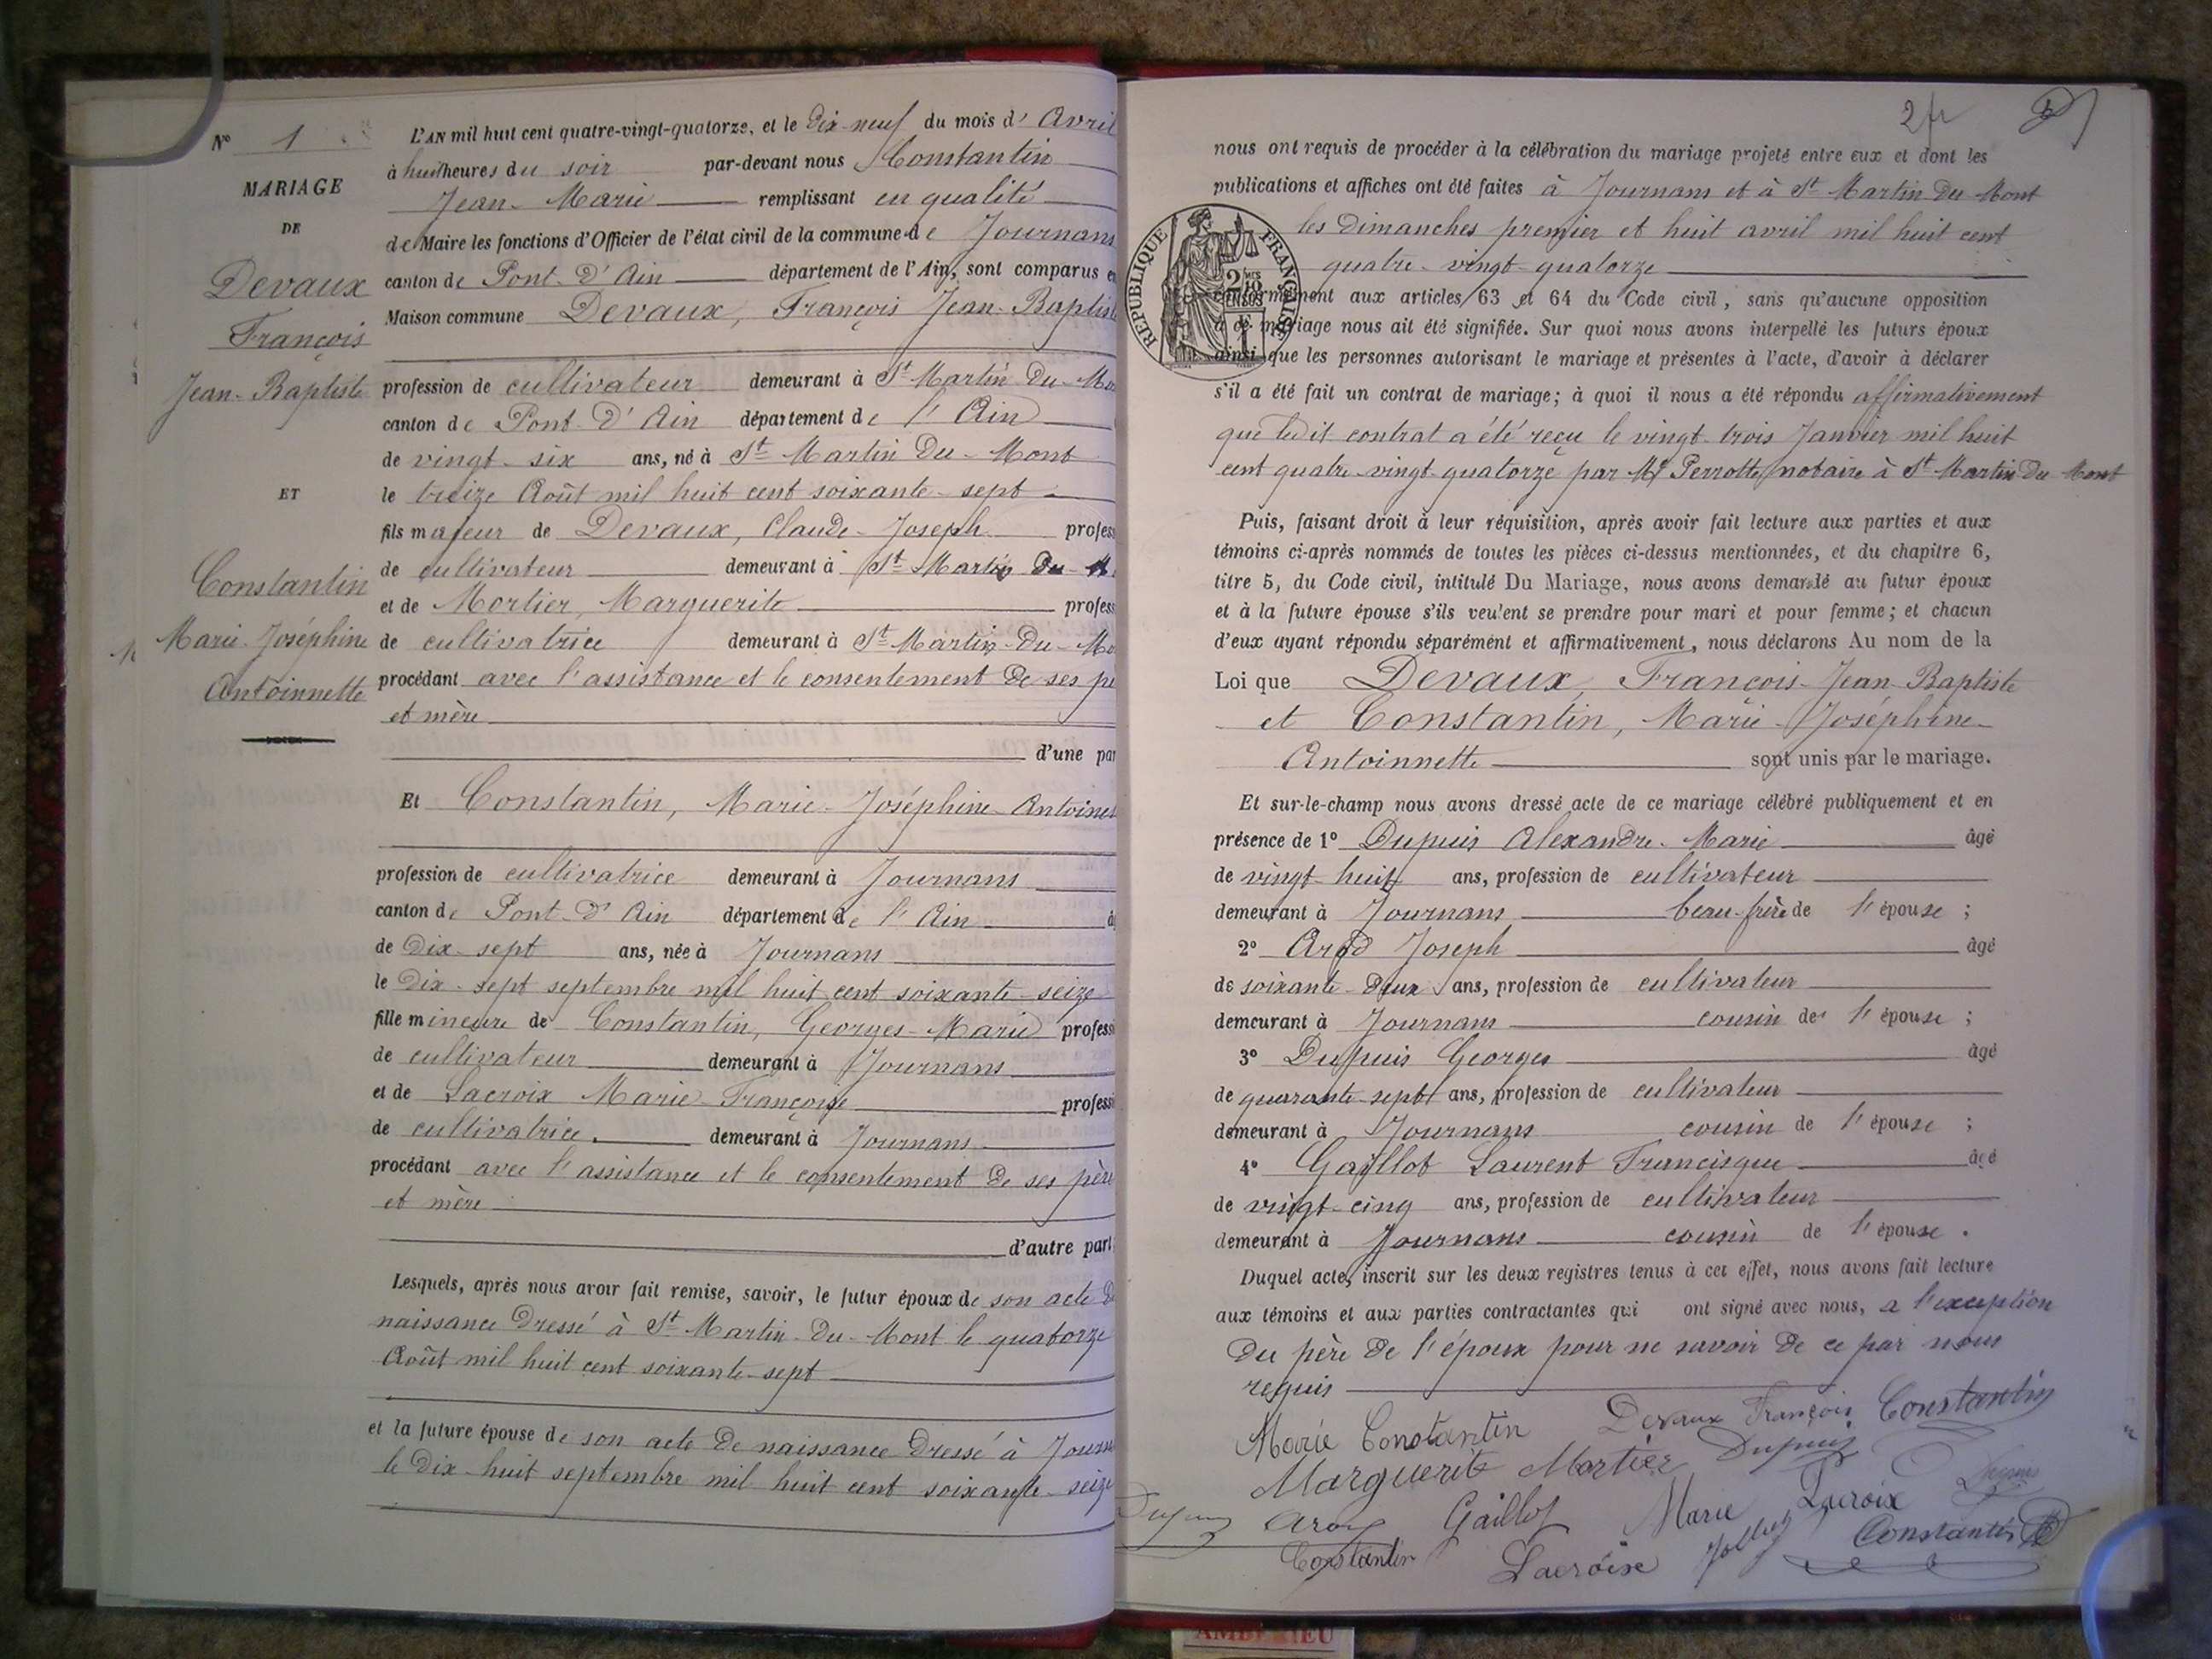 N° 1
MARIAGE
DE
Devaux
François
Jean-Baptiste
ET
Constantin
Marie-Joséphine
Antoinnette
L'AN mil huit cent quatre-vingt-quatorze, et le Dix-neuf du mois d' Avril
à huit heures du soir par-devant nous Constantin
Jean-Marie remplissant en qualité
de Maire les fonctions d'Officier de l'état civil de la commune de Journans
canton de Pont-d'Ain département de l'Ain, sont comparus e
Maison commune Devaux, François Jean-Baptiste
profession de cultivateur demeurant à St Martin-du-Mo
canton de Pont-d'Ain département de l'Ain
de vingt-six ans, né à St Martin-Du-Mont
le treize Août mil huit cent soixante-sept
fils majeur de Devaux, Claude-Joseph profess
de cultivateur demeurant à St Martin Du-M
et de Mortier, Marguerite profess
de cultivatrice demeurant à St Martin-Du-Mo
procédant avec l'assistance et le consentement de ses pè
et mère
d'une par
Et Constantin, Marie-Joséphine-Antoinet
profession de cultivatrice demeurant à Journans
canton de Pont-d'Ain département de l'Ain â
de Dix-sept ans, née à Journans
le Dix-sept septembre mil huit cent soixante-seize
fille mineure de Constantin, Georges-Marie professi
de cultivateur demeurant à Journans
et de Lacroix Marie-Françoise professi
de cultivatrice demeurant à Journans
procédant avec l'assistance et le consentement de ses père
et mère
d'autre part
Lesquels, après nous avoir fait remise, savoir, le futur époux de son acte d
naissance Dressé à St Martin-Du-Mont le quatorze
Août mil huit cent soixante-sept
et la future épouse de son acte de naissance Dressé à Journ
le Dix-huit septembre mil huit cent soixante-seize
2
nous ont requis de procéder à la célébration du mariage projeté entre eux et dont les
publications et affiches ont été faites à Journans et à St Martin-Du-Mont
les Dimanches premier et huit avril mil huit cent
quatre-vingt-quatorze
RÉPUBLIQUE FRANÇAISE
conformément aux articles 63 et 64 du Code civil, sans qu'aucune opposition
à ce mariage nous ait été signifiée. Sur quoi nous avons interpellé les futurs époux
ainsi que les personnes autorisant le mariage et présentes à l'acte, d'avoir à déclarer
s'il a été fait un contrat de mariage; à quoi il nous a été répondu affirmativement
que ledit contrat a été reçu le vingt-trois Janvier mil huit
cent quatre-vingt-quatorze par Me Perrotte, notaire à St Martin-Du-Mont
Puis, faisant droit à leur réquisition, après avoir fait lecture aux parties et aux
témoins ci-après nommés de toutes les pièces ci-dessus mentionnées, et du chapitre 6,
titre 5, du Code civil, intitulé Du Mariage, nous avons demandé au futur époux
et à la future épouse s'ils veulent se prendre pour mari et pour femme; et chacun
d'eux ayant répondu séparément et affirmativement, nous déclarons Au nom de la
Loi que Devaux, François-Jean-Baptiste
et Constantin, Marie-Joséphine-
Antoinnette sont unis par le mariage.
Et sur-le-champ nous avons dressé acte de ce mariage célébré publiquement et en
présence de 1° Dupuis Alexandre-Marie âgé
de vingt-huit ans, profession de cultivateur
demeurant à Journans beau-frère de l'épouse ;
2° Joseph âgé
de soixante-deux ans, profession de cultivateur
demeurant à Journans cousin de l'épouse ;
3° Dupuis Georges âgé
de quarante-sept ans, profession de cultivateur
demeurant à Journans cousin de l'épouse ;
4° Gaillot Laurent Francisque âgé
de vingt-cinq ans, profession de cultivateur
demeurant à Journans cousin de l'épouse .
Duquel acte, inscrit sur les deux registres tenus à cet effet, nous avons fait lecture
aux témoins et aux parties contractantes qui ont signé avec nous, a l'exception
Du père de l'époux pour ne savoir de ce par nous
requis
Marie Constantin Devaux François Constantin
Marguerite Mortier Dupuis
Gaillot Marie Lacroix
Constantin Lacroix Constantin